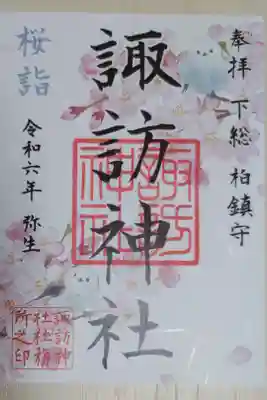 奉拝 下総 柏鎮守
諏訪神社
桜詣
令和六年 弥生
諏訪神社
諏訪神
社社務
所之印